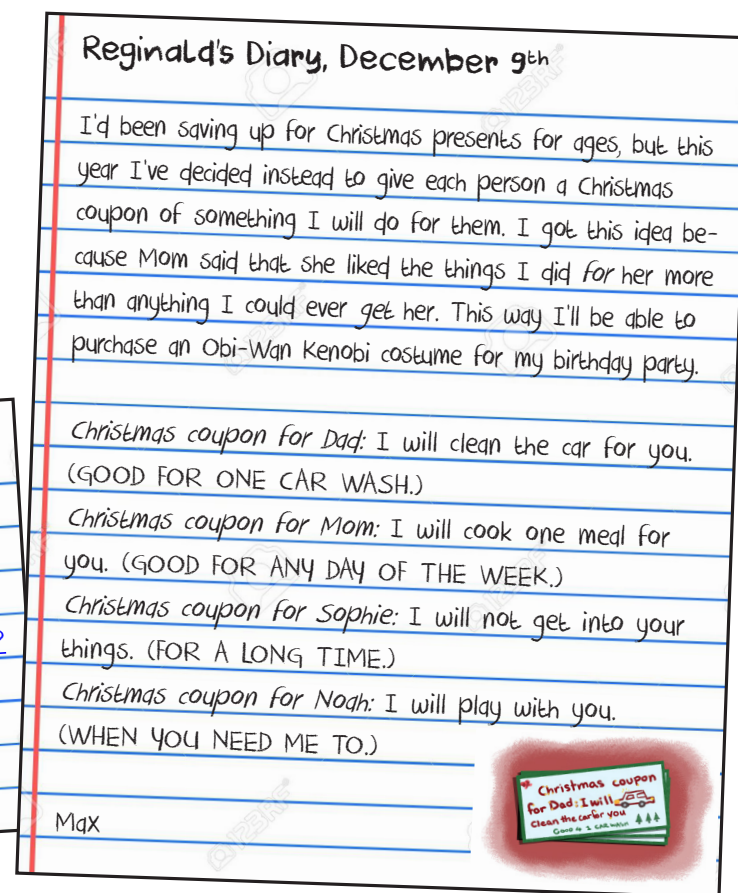 Reginald's Diary, December 9th
I'd been saving up for Christmas presents for ages, but this
year I've decided instead to give each person a Christmas
coupon of something I will do for them. I got this idea be-
cause Mom said that she liked the things I did for her more
than anything I could ever get her. This way I'll be able to
purchase an Obi-Wan Kenobi costume for my birthday party.
Christmas coupon for Dad: I will clean the car for you.
(GOOD FOR ONE CAR WASH.)
Christmas coupon for Mom: I will cook one meal for
you. (GOOD FOR ANY DAY OF THE WEEK.)
Christmas coupon for Sophie: I will not get into your
things. (FOR A LONG TIME.)
Christmas coupon for Noah: I will play with you.
(WHEN YOU NEED ME TO.)
Max
Christmas coupon
for Dad: I will
clean the car for you
Good 4 1 CAR WASH
123RF